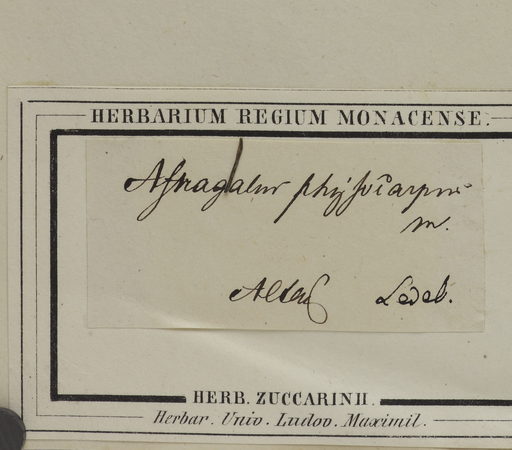 HERBARIUM REGIUM MONACENSE.
Astragalus physocarpus
m.
Altai Ledeb.
HERB. ZUCCARINII.
Herbar. Univ. Ludov. Maximil.